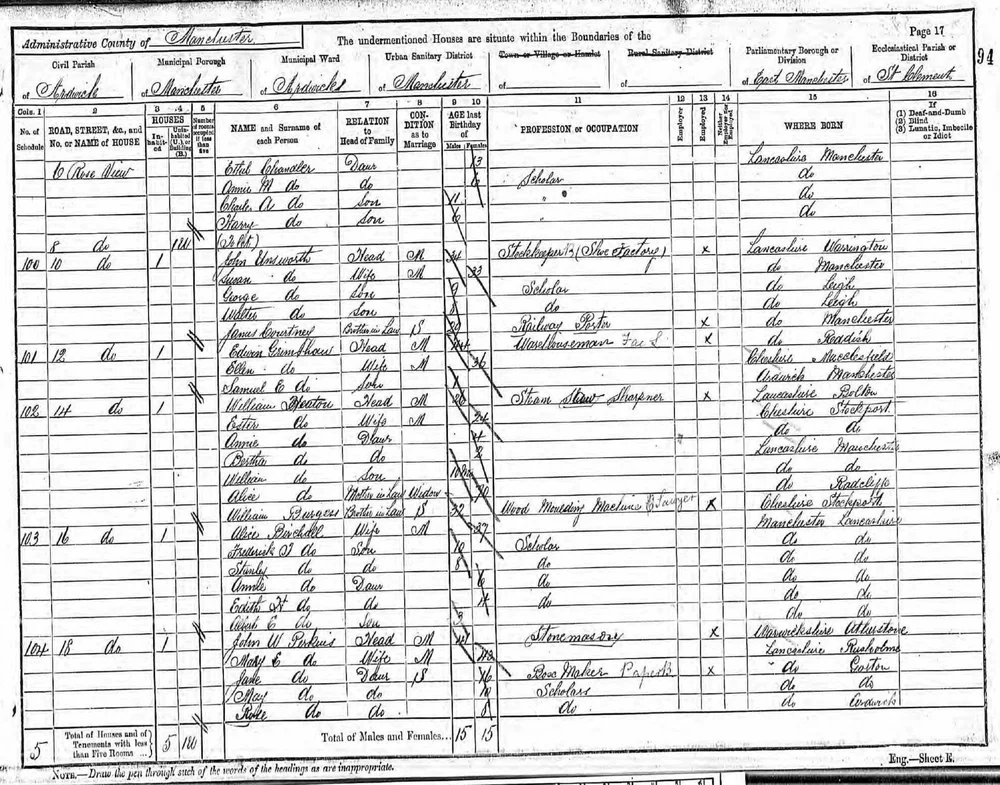 Administrative County of Manchester The undermentioned Houses are situate within the Boundaries of the Page 17
94
Civil Parish Municipal Borough Municipal Ward Urban Sanitary District Town or Village or Hamlet Rural Sanitary District Parliamentary Borough or Division Ecclesiastical Parish or District
of Ardwick of Manchester of Ardwick of Manchester of of of East Manchester of St Clement
Cols. 1 2 3 4 5 6 7 8 9 10 11 12 13 14 15 16
No. of Schedule ROAD, STREET, &c., and No. or NAME of HOUSE HOUSES Inhabited Uninhabited (U.) or Building (B.) Number of rooms occupied if less than five NAME and Surname of each Person RELATION to Head of Family CONDITION as to Marriage AGE last Birthday of Males Females PROFESSION or OCCUPATION Employer Employed Neither Employer nor Employed WHERE BORN If (1) Deaf-and-Dumb (2) Blind (3) Lunatic, Imbecile or Idiot
6 Rose View Ethel Chandler Daur 13 Lancashire Manchester
Annie M do do 6 Scholar do
Charles A do Son 11 " do
Harry do Son 6 " do
8 do 1U (To Let)
100 10 do 1 John Unsworth Head M 34 Stockkeeper (Shoe Factory) x Lancashire Warrington
Susan do Wife M 33 do Manchester
George do Son 9 Scholar do Leigh
Walter do Son 8 do do Leigh
James Courtney Brother in Law S 29 Railway Porter x do Manchester
101 12 do 1 Edwin Grimshaw Head M 44 Warehouseman x do Reddish
Ellen do Wife M 36 Cheshire Macclesfield
Samuel E do Son 1 Ardwick Manchester
102 14 do 1 William Heaton Head M 26 Steam Saw Sharpner x Lancashire Bolton
Ester do Wife M 24 Cheshire Stockport
Annie do Daur 4 do do
Bertha do do 2 Lancashire Manchester
William do Son do do
Alice do Mother in Law Widow do Radcliffe
William Burgess Brother in Law S 32 Wood Moulding Machine Sawyer x Cheshire Stockport
103 16 do 1 Alice Birchall Wife M 37 Manchester Lancashire
Frederick J do Son 10 Scholar do do
Stanley do do 8 do do do
Annie do Daur 6 do do do
Edith H do do 4 do do do
E do Son 3 do do
104 18 do 1 John W Perkins Head M 44 Stonemason x Warwickshire Atherstone
Mary E do Wife M 43 Lancashire Rusholme
Jane do Daur S 16 Box Maker Paper x do Gorton
May do do 10 Scholars do do
Rose do do 8 do do Ardwick
5 Total of Houses and of Tenements with less than Five Rooms ... 5 1U Total of Males and Females... 15 15
NOTE.—Draw the pen through such of the words of the headings as are inappropriate. Eng.—Sheet E.